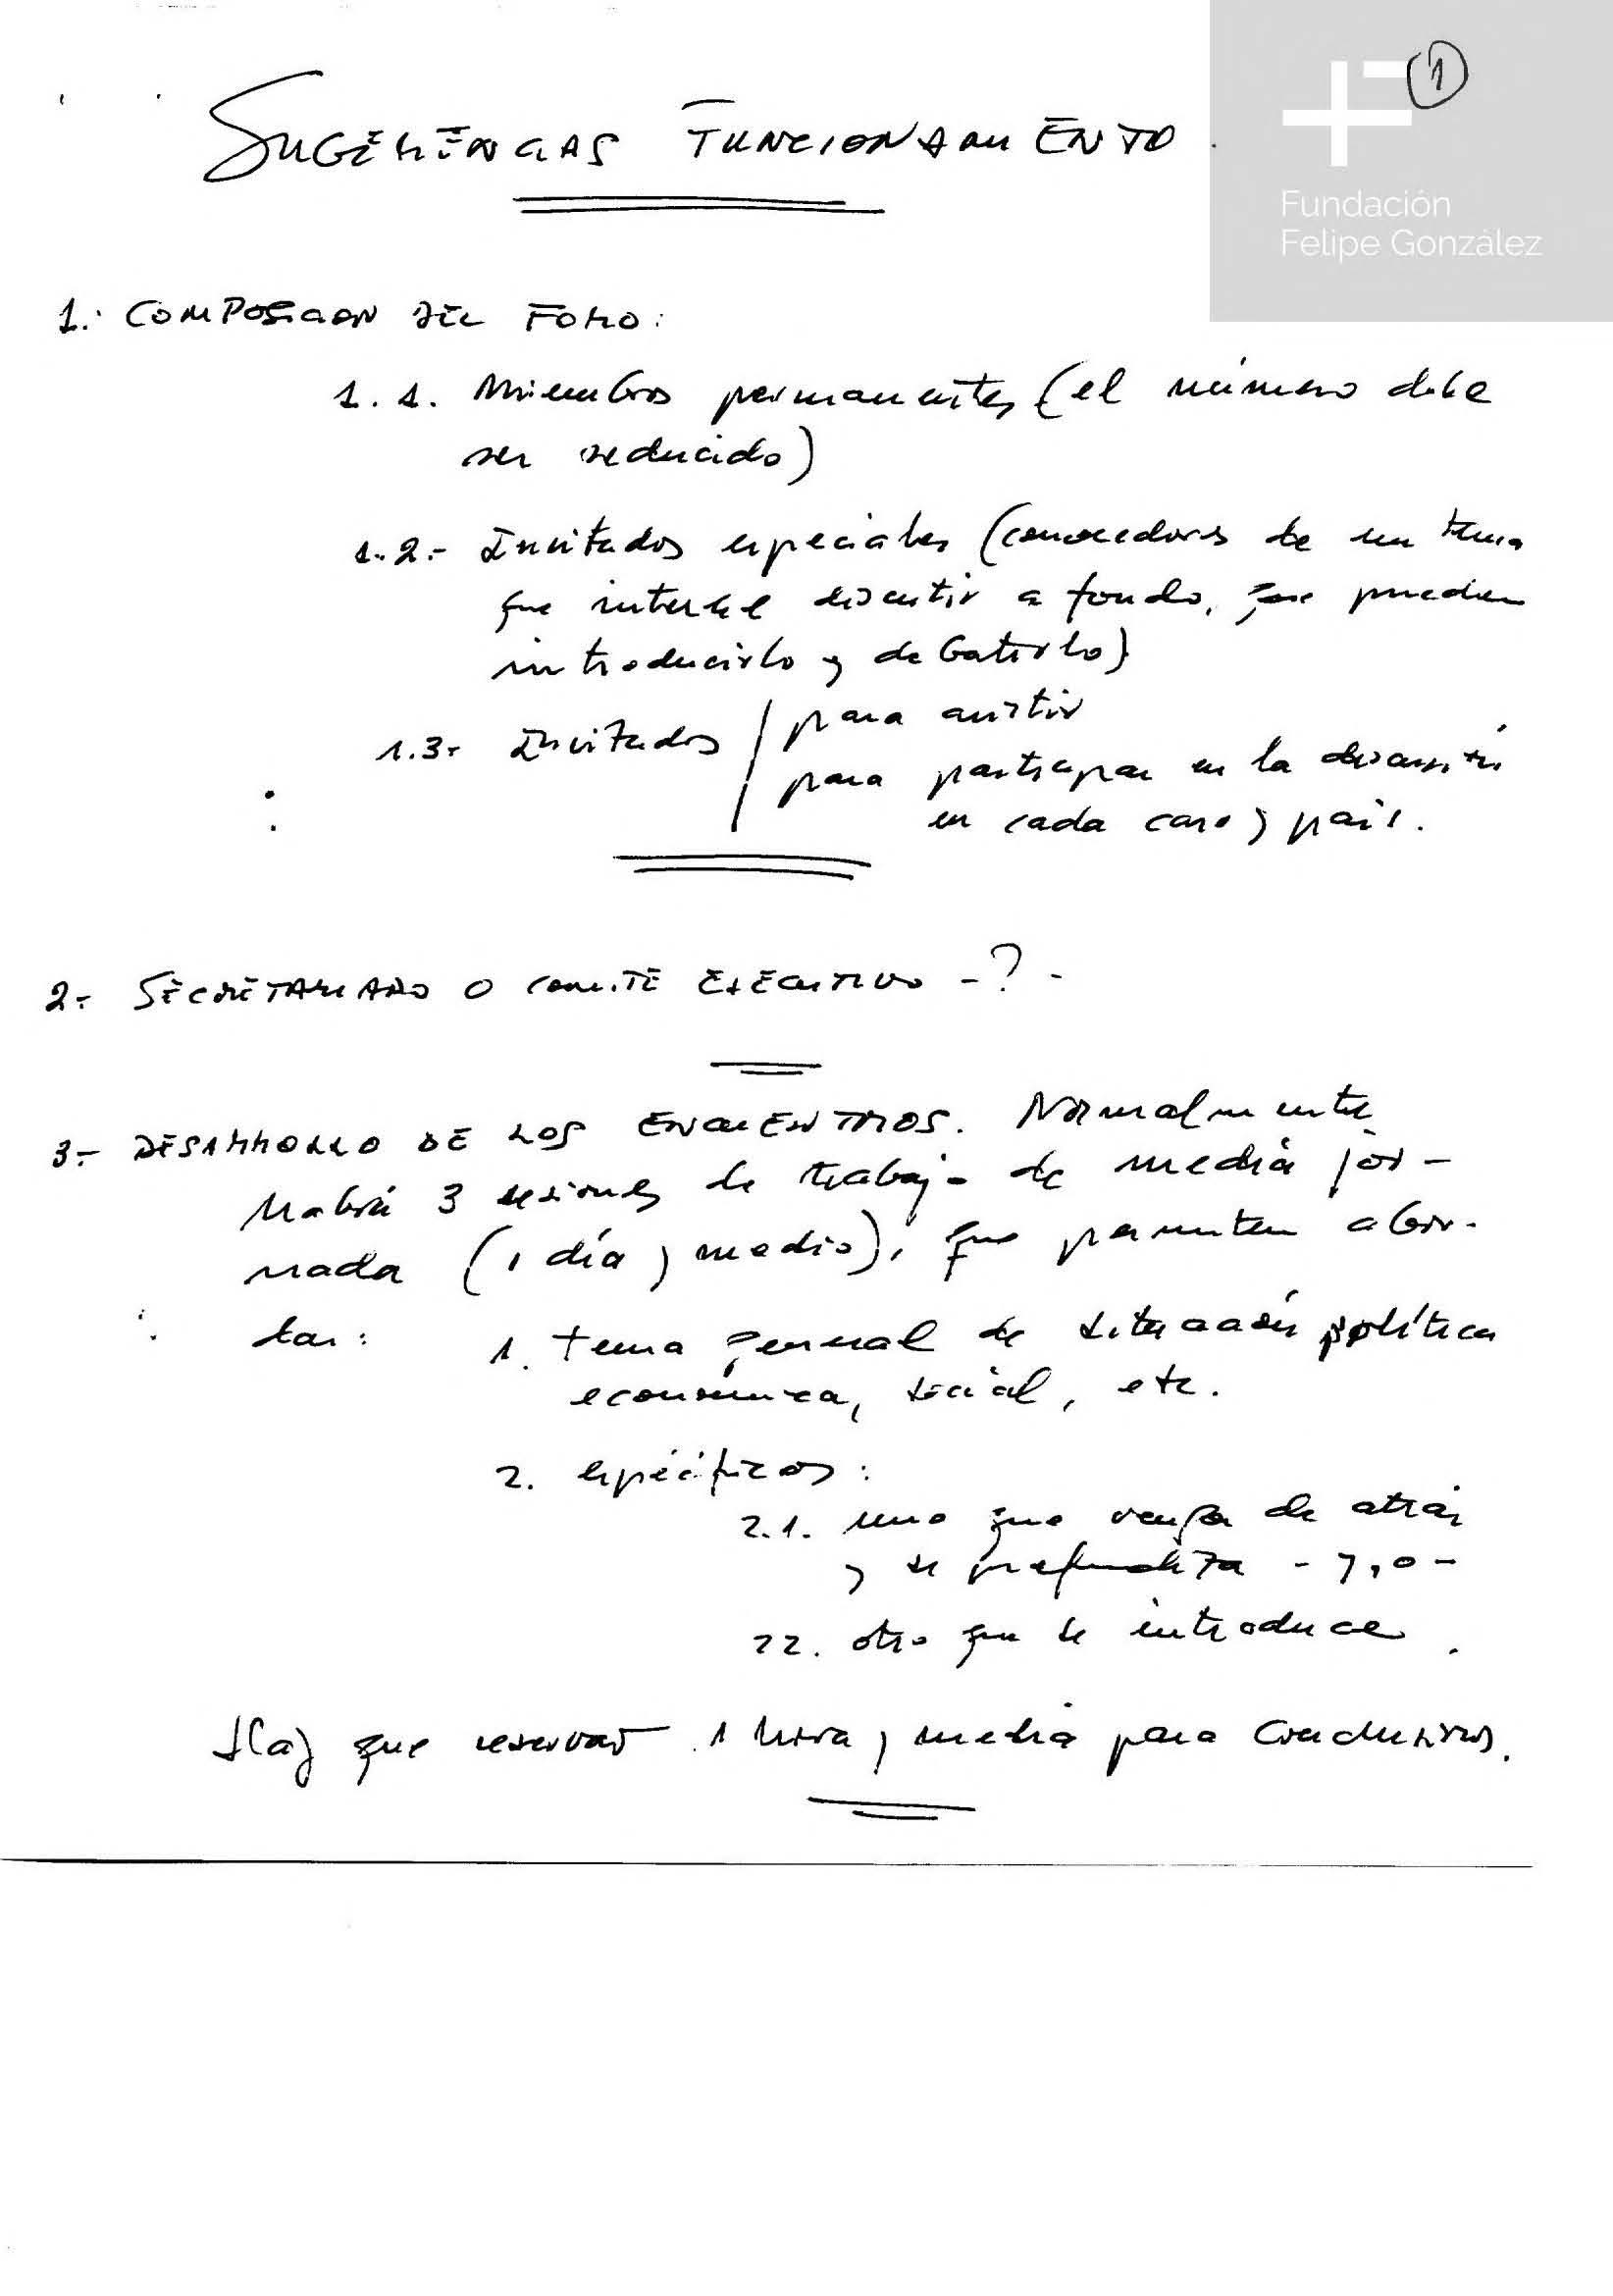 1
Fundación
Felipe González
SUGERENCIAS FUNCIONAMIENTO.
1.- COMPOSICION DEL FORO:
1.1. Miembros permanentes (el número debe
ser reducido)
1.2.- Invitados especiales (conocedores de un tema
que interese discutir a fondo, que pueden
introducirlo y debatirlo)
1.3.- Invitados / para asistir
para participar en la discusión
en cada caso y país.
2.- SECRETARIADO O COMITÉ EJECUTIVO -?-
3.- DESARROLLO DE LOS ENCUENTROS. Normalmente
habrá 3 sesiones de trabajo de media jor-
nada (1 día y medio), que permiten abor-
dar:
1. tema general de situación política
económica, social, etc.
2. específicos:
2.1. uno que venga de atrás
y se profundiza - y, o -
22. otro que se introduce.
Hay que reservar 1 hora y media para conclusiones.